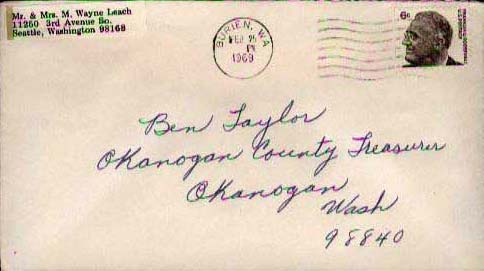 Mr. & Mrs. M. Wayne Leach
11250 3rd Avenue So.
Seattle, Washington 98168
BURIEN, WA
FEB 25
PM
1969
6¢
Ben Taylor
Okanogan County Treasurer
Okanogan
Wash
98840